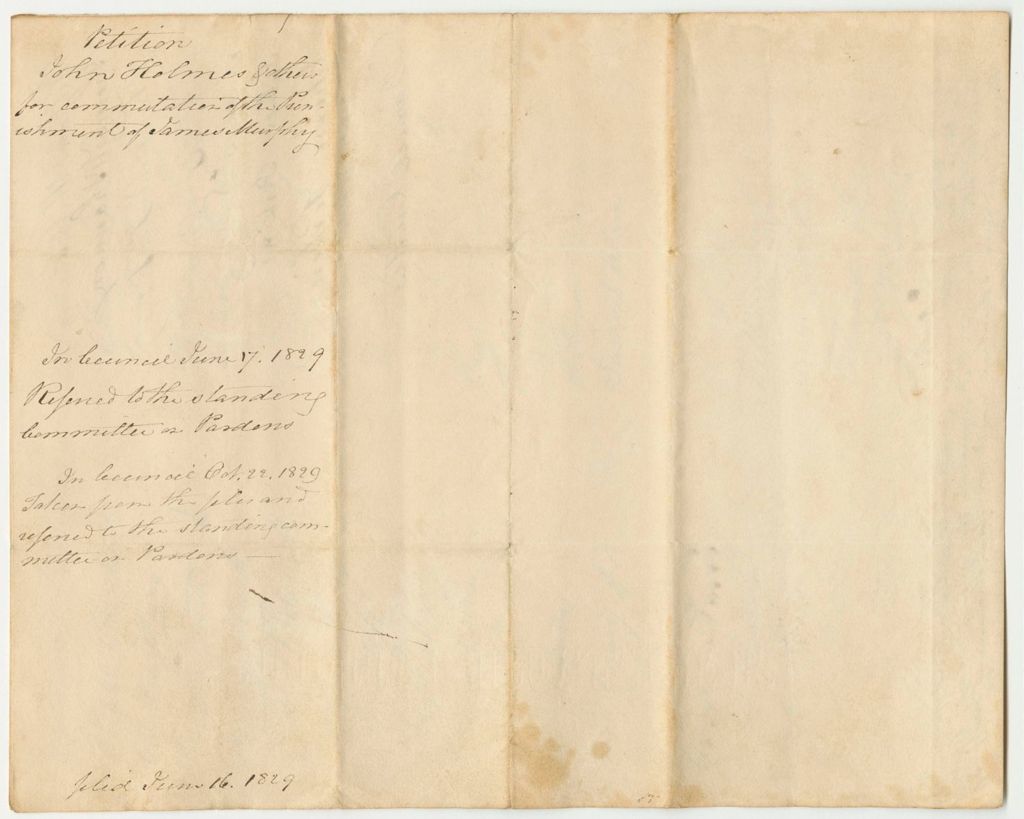 Petition
John Holmes & others
for commutation of the Pun-
ishment of James Murphy
In Council June 17. 1829
Referred to the standing
Committee on Pardons
In Council Oct. 22. 1829
Taken from the files and
referred to the standing com-
mittee on Pardons —
filed June 16. 1829